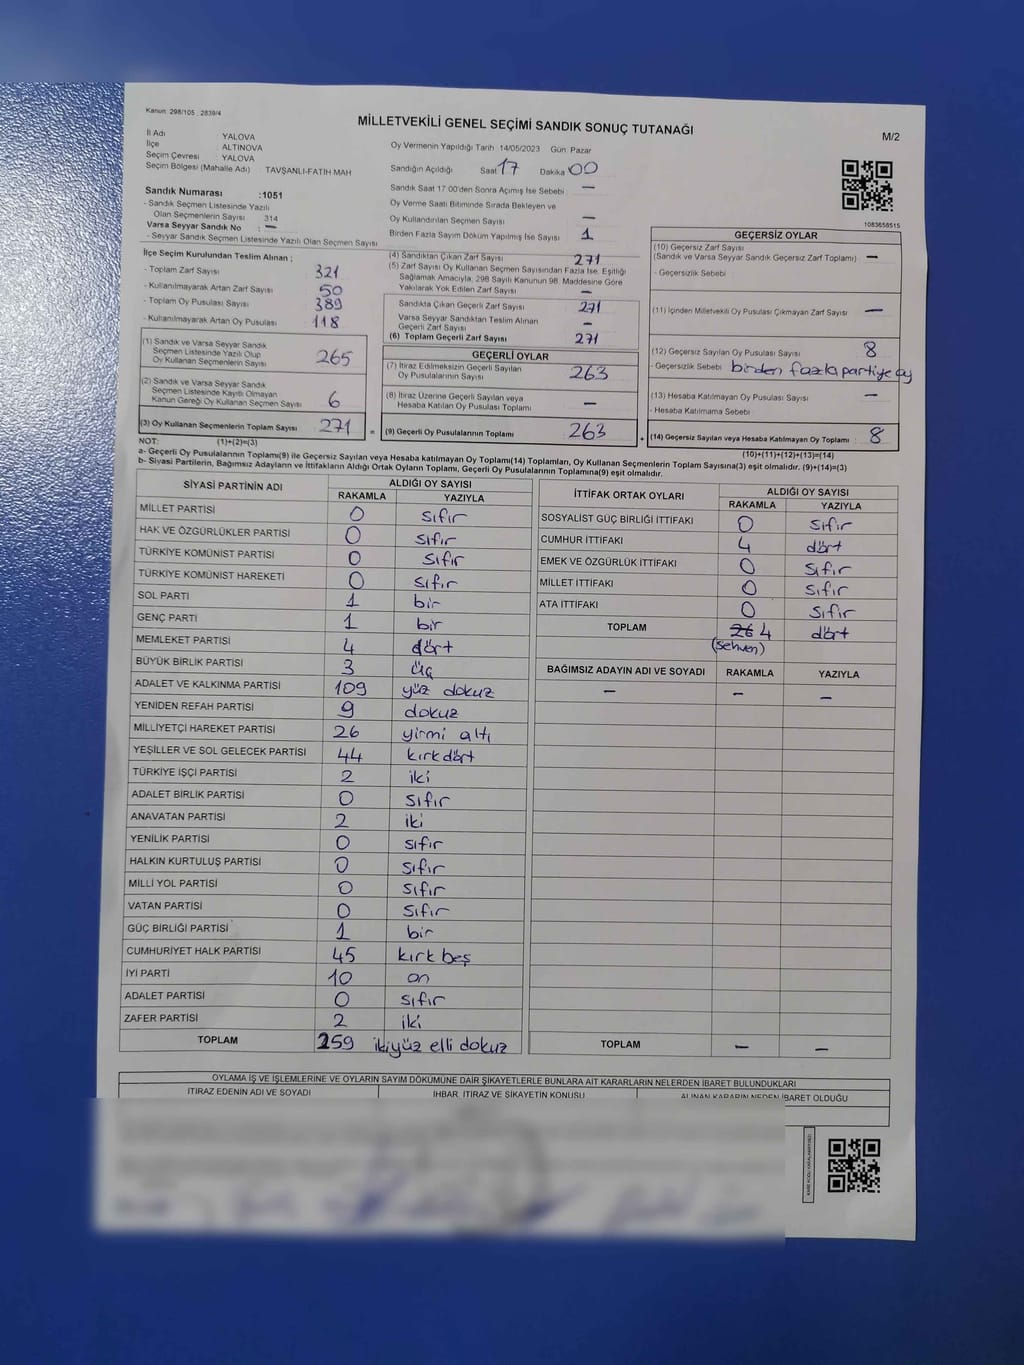 Kanun: 298/105 , 2839/4
MİLLETVEKİLİ GENEL SEÇİMİ SANDIK SONUÇ TUTANAĞI
M/2
İl Adı YALOVA
İlçe ALTINOVA
Seçim Çevresi YALOVA
Seçim Bölgesi (Mahalle Adı) : TAVŞANLI-FATİH MAH
Sandık Numarası :1051
- Sandık Seçmen Listesinde Yazılı
Olan Seçmenlerin Sayısı : 314
Varsa Seyyar Sandık No : —
- Seyyar Sandık Seçmen Listesinde Yazılı Olan Seçmen Sayısı
Oy Vermenin Yapıldığı Tarih 14/05/2023 Gün: Pazar
Sandığın Açıldığı Saat 17 Dakika 00
Sandık Saat 17:00'den Sonra Açımış İse Sebebi : —
Oy Verme Saati Bitiminde Sırada Bekleyen ve
Oy Kullandırılan Seçmen Sayısı —
Birden Fazla Sayım Döküm Yapılmış İse Sayısı : 1
1083658515
İlçe Seçim Kurulundan Teslim Alınan ;
- Toplam Zarf Sayısı 321
- Kullanılmayarak Artan Zarf Sayısı 50
- Toplam Oy Pusulası Sayısı 389
- Kullanılmayarak Artan Oy Pusulası 118
(1) Sandık ve Varsa Seyyar Sandık
Seçmen Listesinde Yazılı Olup
Oy Kullanan Seçmenlerin Sayısı 265
(2) Sandık ve Varsa Seyyar Sandık
Seçmen Listesinde Kayıtlı Olmayan
Kanun Gereği Oy Kullanan Seçmen Sayısı 6
(3) Oy Kullanan Seçmenlerin Toplam Sayısı 271 =
(4) Sandıktan Çıkan Zarf Sayısı 271
(5) Zarf Sayısı Oy Kullanan Seçmen Sayısından Fazla İse, Eşitliği
Sağlamak Amacıyla; 298 Sayılı Kanunun 98. Maddesine Göre
Yakılarak Yok Edilen Zarf Sayısı —
Sandıkta Çıkan Geçerli Zarf Sayısı 271
Varsa Seyyar Sandıktan Teslim Alınan
Geçerli Zarf Sayısı —
(6) Toplam Geçerli Zarf Sayısı 271
GEÇERLİ OYLAR
(7) İtiraz Edilmeksizin Geçerli Sayılan
Oy Pusulalarının Sayısı 263
(8) İtiraz Üzerine Geçerli Sayılan veya
Hesaba Katılan Oy Pusulası Toplamı —
(9) Geçerli Oy Pusulalarının Toplamı 263 +
GEÇERSİZ OYLAR
(10) Geçersiz Zarf Sayısı
(Sandık ve Varsa Seyyar Sandık Geçersiz Zarf Toplamı) : —
- Geçersizlik Sebebi
(11) İçinden Milletvekili Oy Pusulası Çıkmayan Zarf Sayısı : —
(12) Geçersiz Sayılan Oy Pusulası Sayısı 8
- Geçersizlik Sebebi: birden fazla partiye oy
(13) Hesaba Katılmayan Oy Pusulası Sayısı —
- Hesaba Katılmama Sebebi
(14) Geçersiz Sayılan veya Hesaba Katılmayan Oy Toplamı : 8
NOT: (1)+(2)=(3)
(10)+(11)+(12)+(13)=(14)
a- Geçerli Oy Pusulalarının Toplamı(9) ile Geçersiz Sayılan veya Hesaba katılmayan Oy Toplamı(14) Toplamları, Oy Kullanan Seçmenlerin Toplam Sayısına(3) eşit olmalıdır. (9)+(14)=(3)
b- Siyasi Partilerin, Bağımsız Adayların ve İttifakların Aldığı Ortak Oyların Toplamı, Geçerli Oy Pusulalarının Toplamına(9) eşit olmalıdır.
SİYASİ PARTİNİN ADI ALDIĞI OY SAYISI
RAKAMLA YAZIYLA
MİLLET PARTİSİ 0 sıfır
HAK VE ÖZGÜRLÜKLER PARTİSİ 0 sıfır
TÜRKİYE KOMÜNİST PARTİSİ 0 sıfır
TÜRKİYE KOMÜNİST HAREKETİ 0 sıfır
SOL PARTİ 1 bir
GENÇ PARTİ 1 bir
MEMLEKET PARTİSİ 4 dört
BÜYÜK BİRLİK PARTİSİ 3 üç
ADALET VE KALKINMA PARTİSİ 109 yüz dokuz
YENİDEN REFAH PARTİSİ 9 dokuz
MİLLİYETÇİ HAREKET PARTİSİ 26 yirmi altı
YEŞİLLER VE SOL GELECEK PARTİSİ 44 kırkdört
TÜRKİYE İŞÇİ PARTİSİ 2 iki
ADALET BİRLİK PARTİSİ 0 sıfır
ANAVATAN PARTİSİ 2 iki
YENİLİK PARTİSİ 0 sıfır
HALKIN KURTULUŞ PARTİSİ 0 sıfır
MİLLİ YOL PARTİSİ 0 sıfır
VATAN PARTİSİ 0 sıfır
GÜÇ BİRLİĞİ PARTİSİ 1 bir
CUMHURİYET HALK PARTİSİ 45 kırk beş
İYİ PARTİ 10 on
ADALET PARTİSİ 0 sıfır
ZAFER PARTİSİ 2 iki
TOPLAM 259 ikiyüz elli dokuz
İTTİFAK ORTAK OYLARI ALDIĞI OY SAYISI
RAKAMLA YAZIYLA
SOSYALİST GÜÇ BİRLİĞİ İTTİFAKI 0 sıfır
CUMHUR İTTİFAKI 4 dört
EMEK VE ÖZGÜRLÜK İTTİFAKI 0 sıfır
MİLLET İTTİFAKI 0 sıfır
ATA İTTİFAKI 0 sıfır
TOPLAM 26 4 dört
(sehven)
BAĞIMSIZ ADAYIN ADI VE SOYADI RAKAMLA YAZIYLA
— — —
TOPLAM — —
OYLAMA İŞ VE İŞLEMLERİNE VE OYLARIN SAYIM DÖKÜMÜNE DAİR ŞİKAYETLERLE BUNLARA AİT KARARLARIN NELERDEN İBARET BULUNDUKLARI
İTİRAZ EDENİN ADI VE SOYADI İHBAR, İTİRAZ VE ŞİKAYETİN KONUSU ALINAN KARARIN NEDEN İBARET OLDUĞU